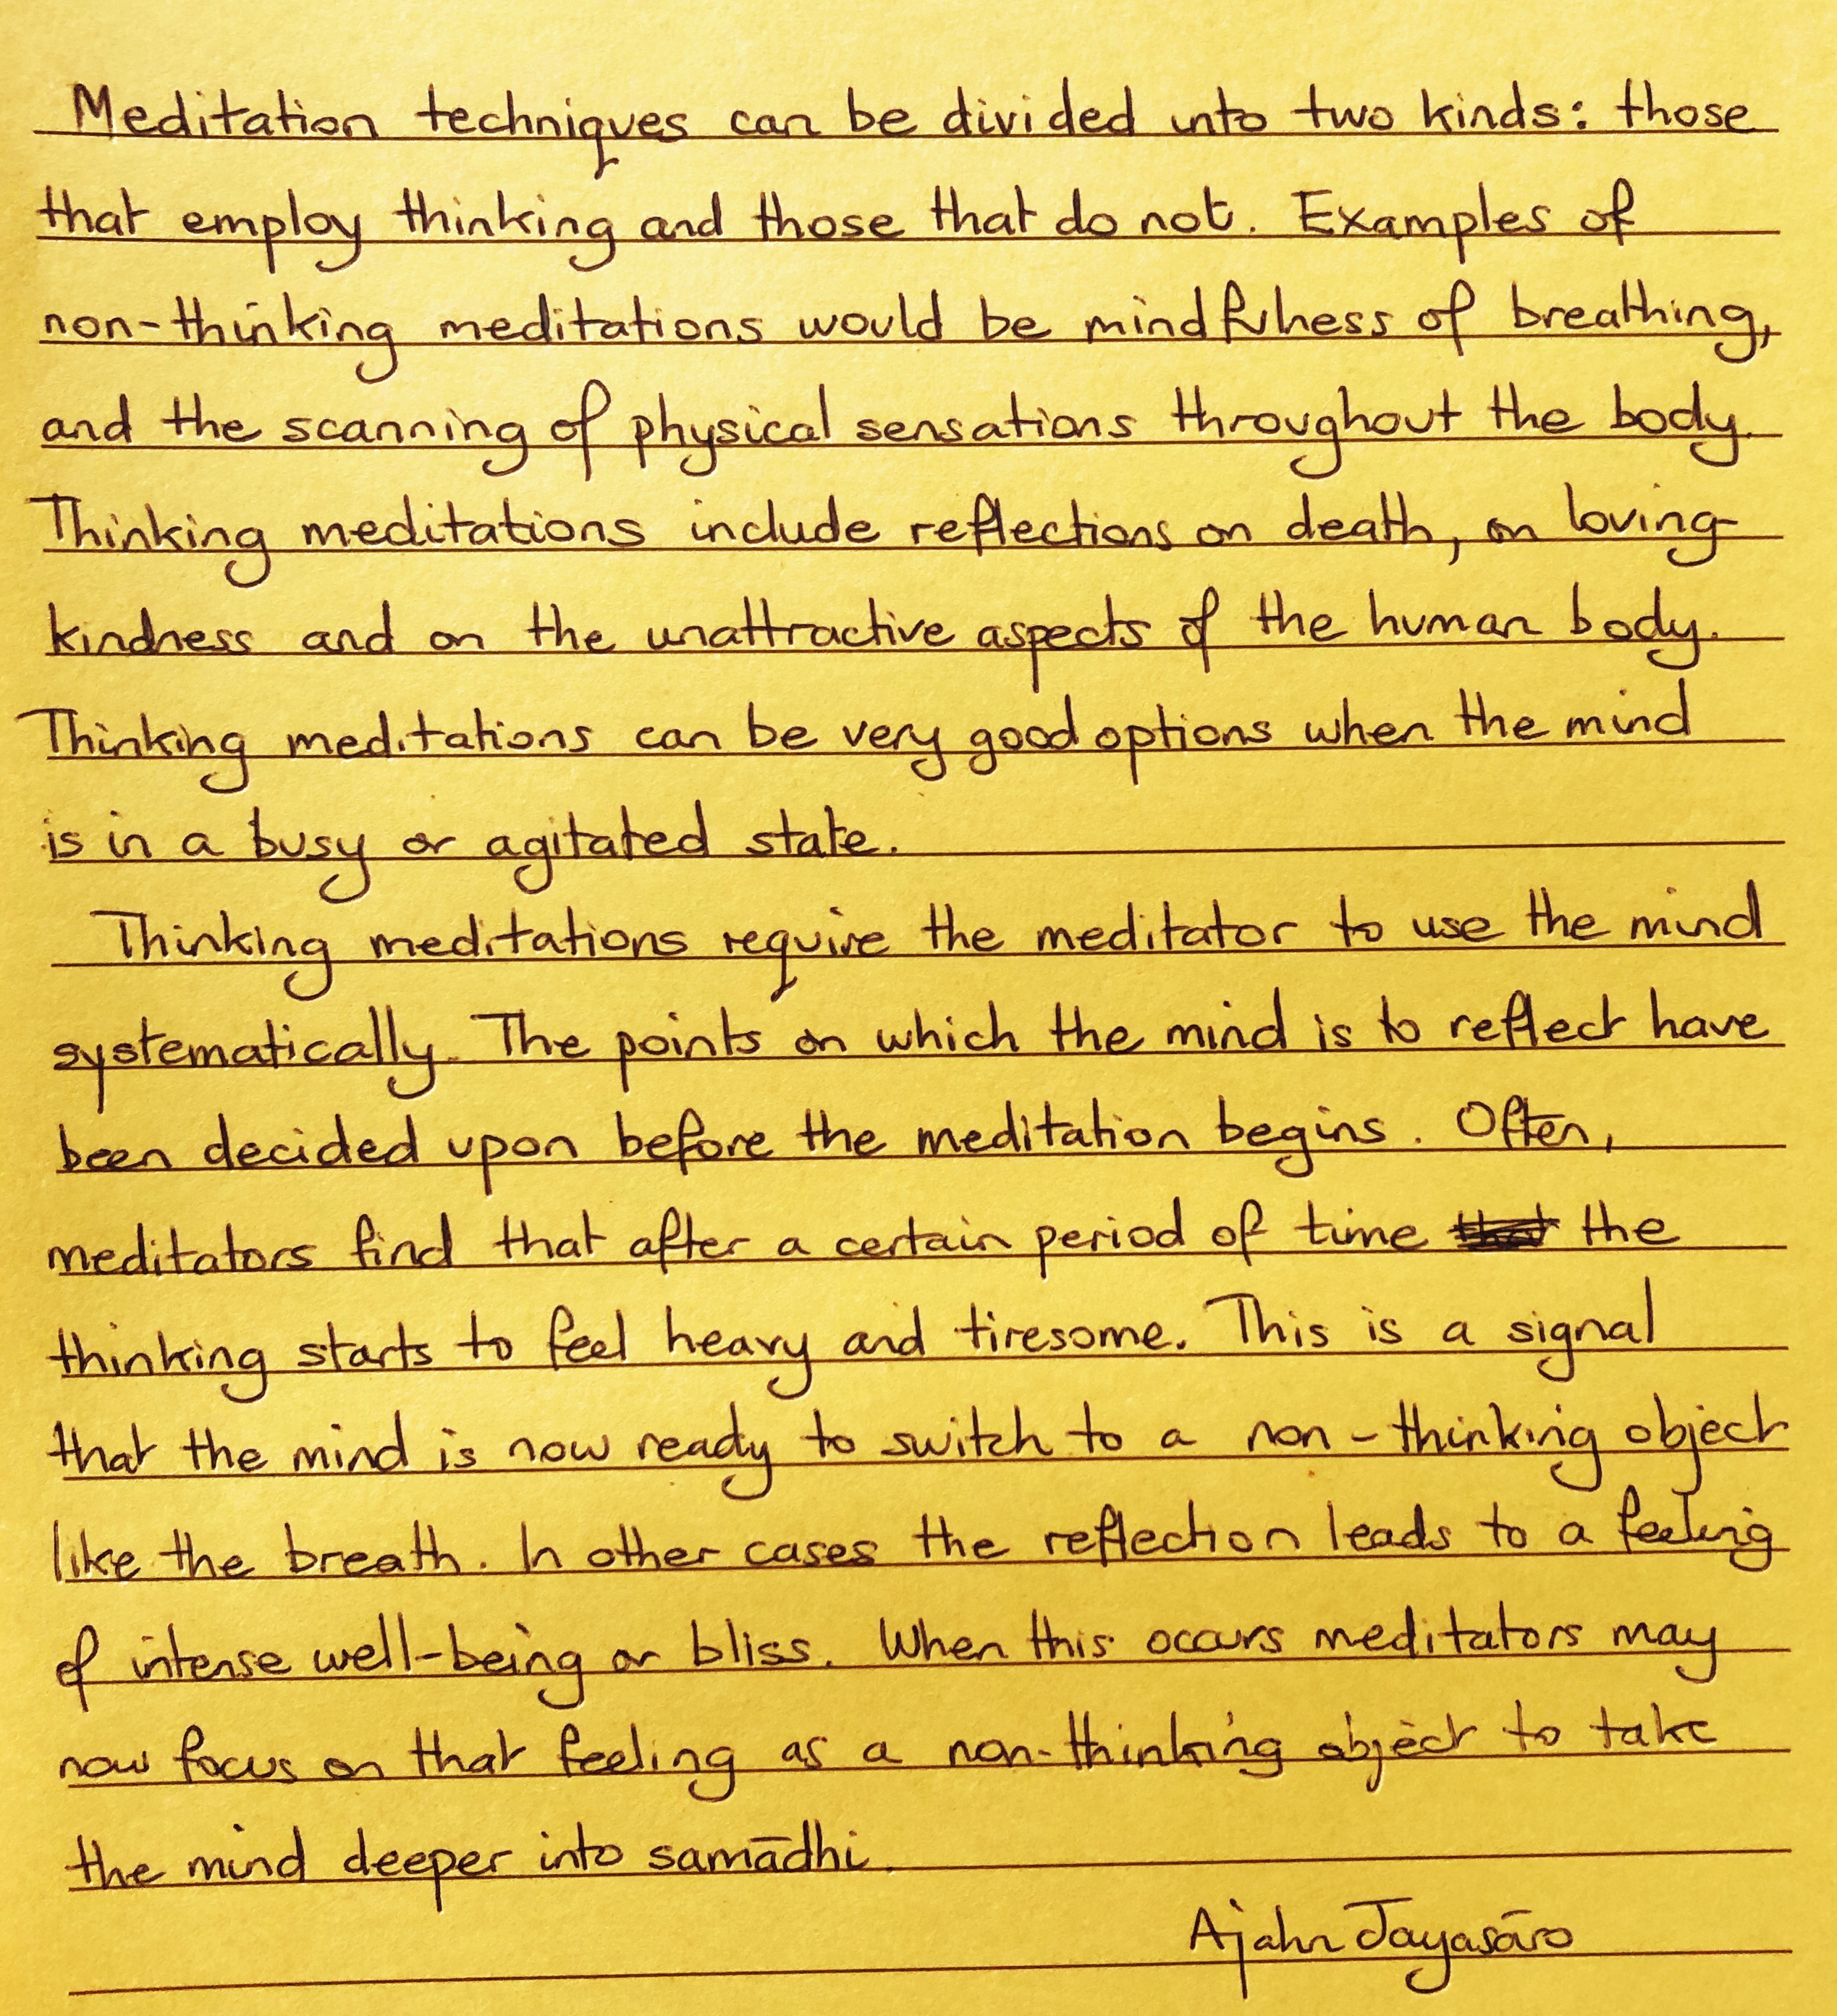 Meditation techniques can be divided into two kinds: those
that employ thinking and those that do not. Examples of
non-thinking meditations would be mindfulness of breathing,
and the scanning of physical sensations throughout the body.
Thinking meditations include reflections on death, on loving-
kindness and on the unattractive aspects of the human body.
Thinking meditations can be very good options when the mind
is in a busy or agitated state.
Thinking meditations require the meditator to use the mind
systematically. The points on which the mind is to reflect have
been decided upon before the meditation begins. Often,
meditators find that after a certain period of time the
thinking starts to feel heavy and tiresome. This is a signal
that the mind is now ready to switch to a non-thinking object
like the breath. In other cases the reflection leads to a feeling
of intense well-being or bliss. When this occurs meditators may
now focus on that feeling as a non-thinking object to take
the mind deeper into samādhi.
Ajahn Jayasāro